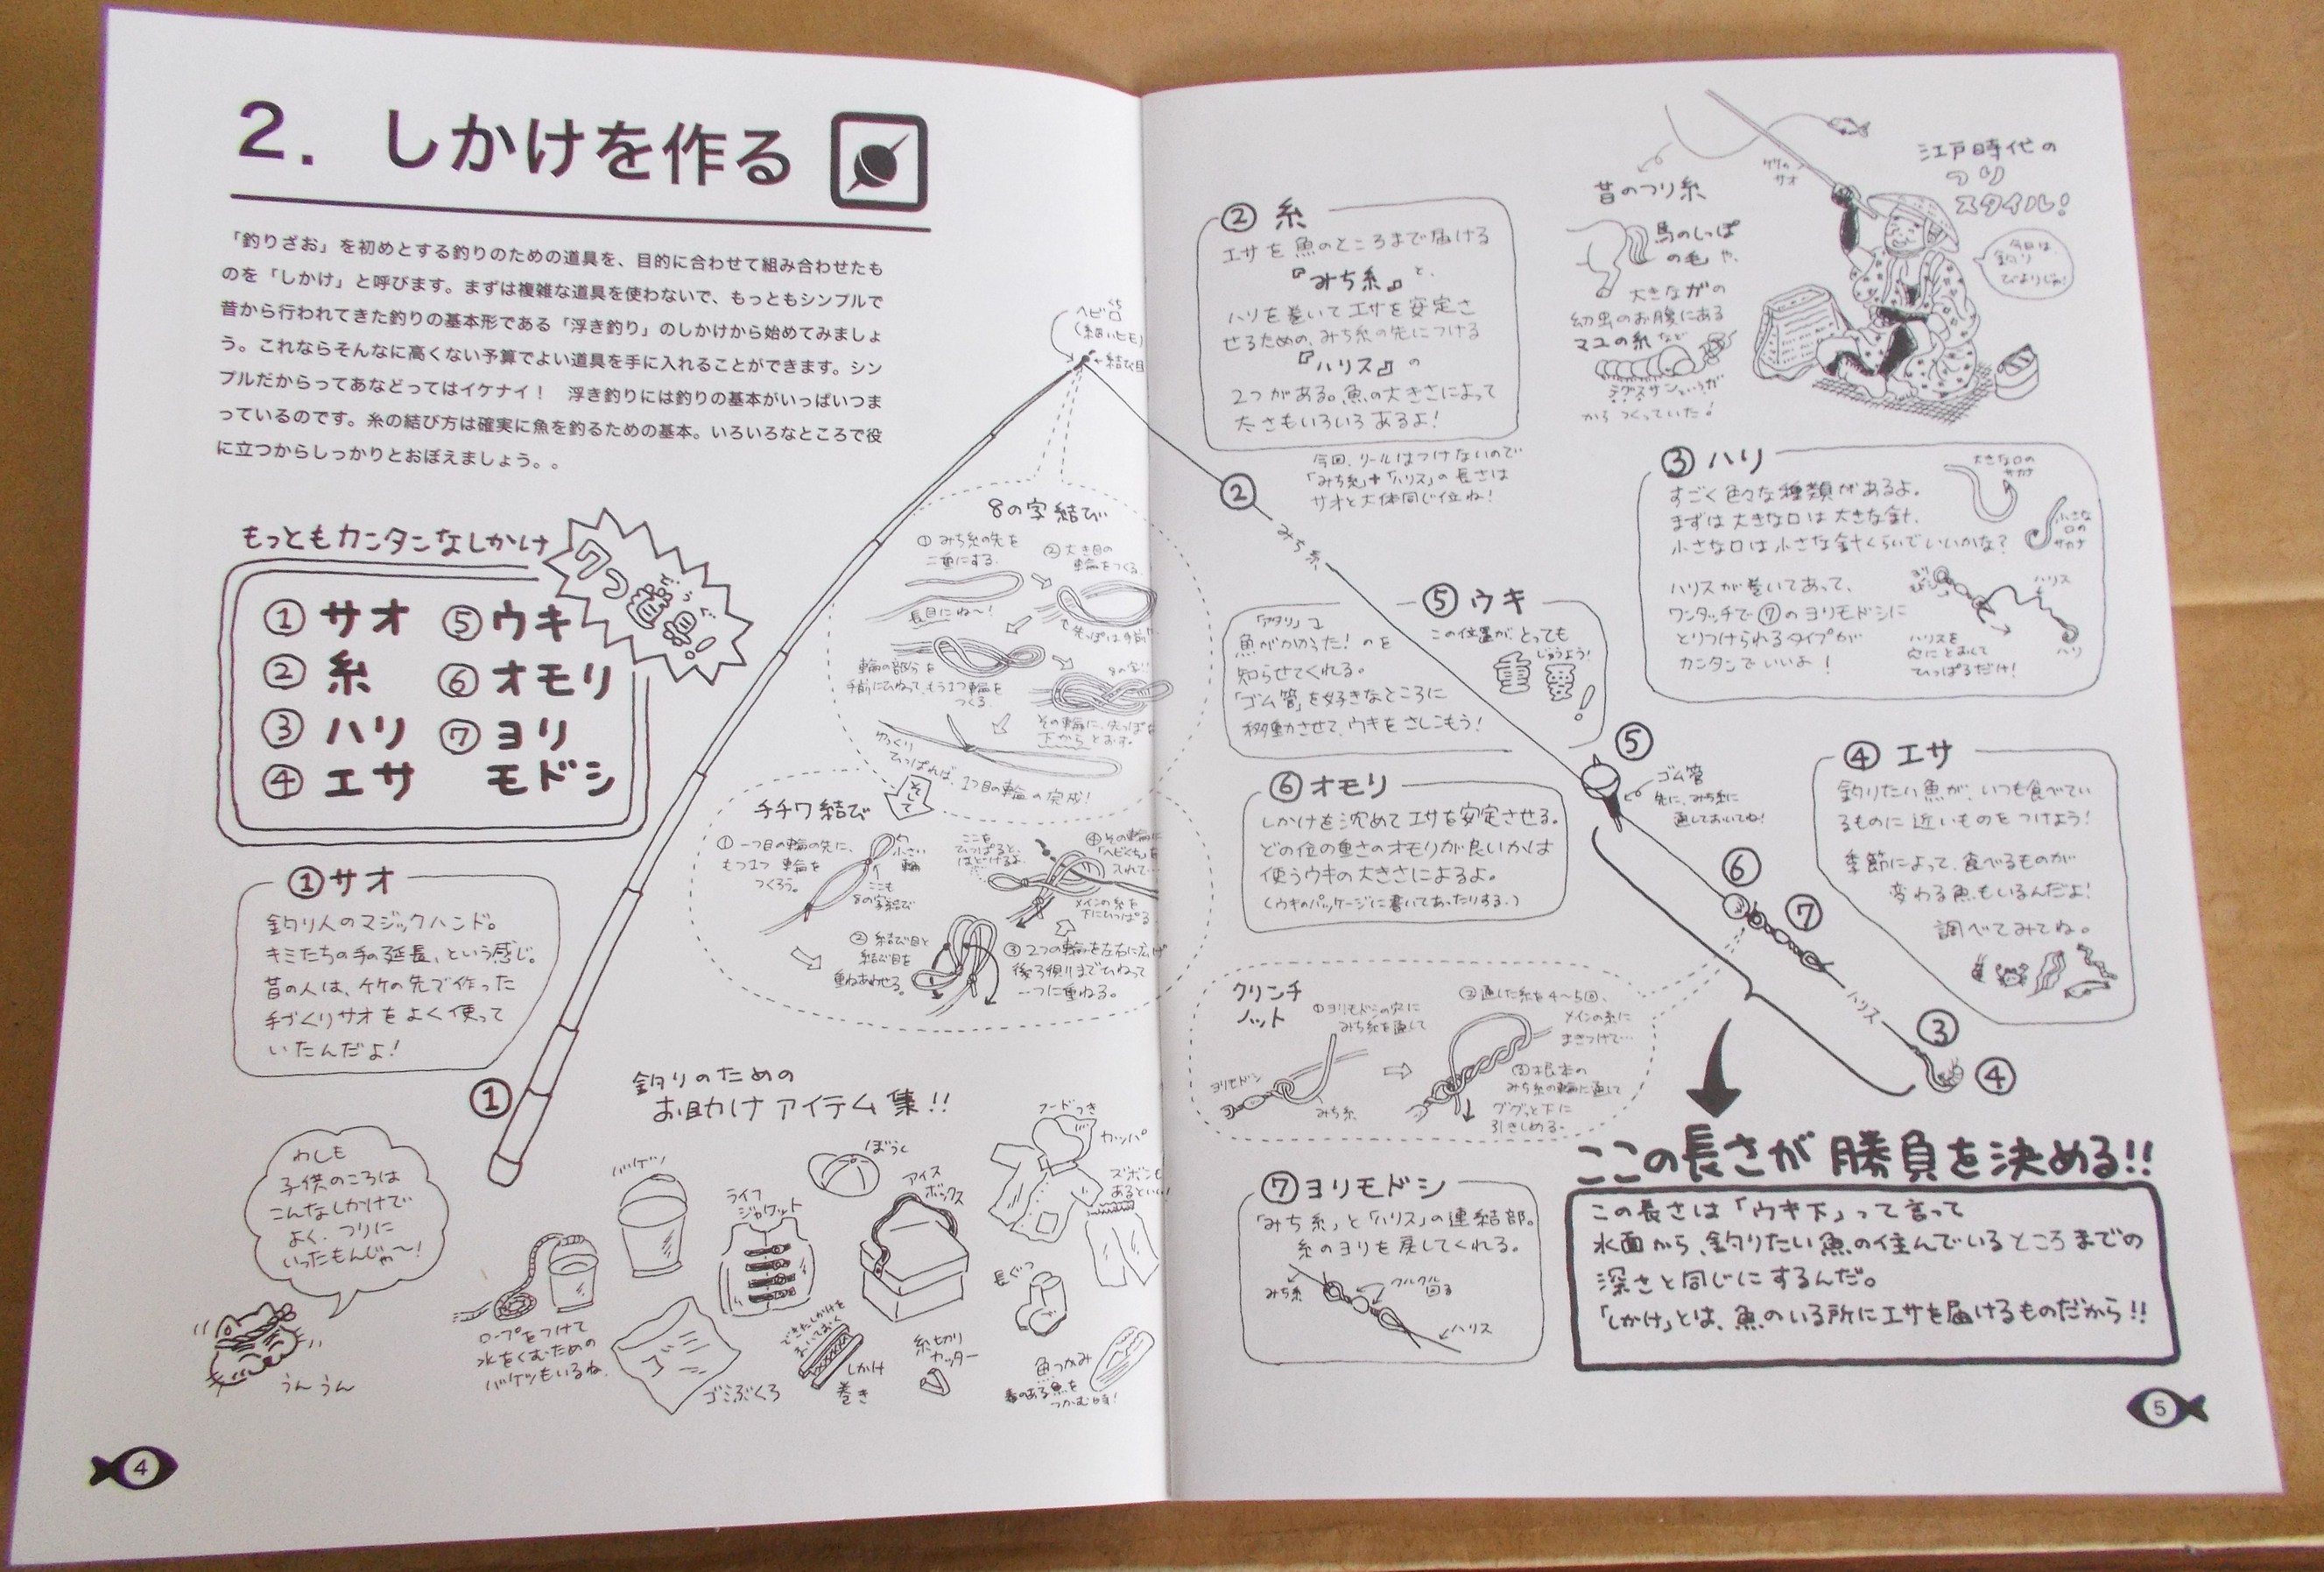 2. しかけを作る
「釣りざお」を初めとする釣りのための道具を、目的に合わせて組み合わせたも
のを「しかけ」と呼びます。まずは複雑な道具を使わないで、もっともシンプルで
昔から行われてきた釣りの基本形である「浮き釣り」のしかけから始めてみましょ
う。これならそんなに高くない予算でよい道具を手に入れることができます。シン
プルだからってあなどってはイケナイ！　浮き釣りには釣りの基本がいっぱいつま
っているのです。糸の結び方は確実に魚を釣るための基本。いろいろなところで役
に立つからしっかりとおぼえましょう。。
もっともカンタンなしかけ
7つ道具!
①サオ
②糸
③ハリ
④エサ
⑤ウキ
⑥オモリ
⑦ヨリ
モドシ
①サオ
釣り人のマジックハンド。
キミたちの手の延長、という感じ。
昔の人は、竹の先で作った
手づくりサオをよく使って
いたんだよ!
①
わしも
子供のころは
こんなしかけで
よく、つりに
いったもんじゃ〜!
うんうん
ヘビ口
くち
(細いヒモ)
←結び目
8の字結び
①みち糸の先を
二重にする。
長目にね〜!
②大き目の
輪をつくる。
輪の部分を
手前にひねって、もう1つ輪を
つくる。
8の字
その輪に、先っぽを
下からとおす。
ゆっくり
ひっぱれば、1つ目の輪の完成!
そして
チチワ結び
①一つ目の輪の先に、
もう1つ輪を
つくろう。
小さい
輪
ここも
8の字結び
②結び目と
結び目を
重ねあわせる。
③2つの輪を左右に広げ
後ろ側りまでひねって
一つに重ねる。
ここを
ひっぱると、
ほどけるよ。
④その輪に
「ヘビくち」を
入れて…
メインの糸を
下にひっぱる
釣りのための
お助けアイテム集!!
ロープをつけて
水をくむための
バケツもいるね。
バケツ
ゴミぶくろ
ライフ
ジャケット
ぼうし
アイス
ボックス
できたしかけを
まいておく
しかけ
巻き
糸切り
カッター
フードつき
カッパ
ズボンも
あるといい!
長ぐつ
魚つかみ
毒のある魚を
つかむ時!
4
②糸
エサを魚のところまで届ける
『みち糸』と、
ハリを巻いてエサを安定さ
せるための、みち糸の先につける
『ハリス』の
2つがある。魚の大きさによって
太さもいろいろあるよ!
今回、リールはつけないので
「みち糸」+「ハリス」の長さは
サオと大体同じ位ね!
②
みち糸
昔のつり糸
馬のしっぽ
の毛や、
大きなガの
幼虫のお腹にある
マユの糸など
テグスサンというガ
からつくっていた!
竹の
サオ
江戸時代の
つり
スタイル!
今日は
釣り
びよりじゃ!
③ハリ
すごく色々な種類があるよ。
まずは大きな口は大きな針、
小さな口は小さな針くらいでいいかな?
ハリスが巻いてあって、
ワンタッチで⑦のヨリモドシに
とりつけられるタイプが
カンタンでいいよ!
大きな口の
サカナ
小さな
口の
サカナ
ハリス
ハリスを
穴にとおして
ひっぱるだけ!
ハリ
⑤ウキ
この位置が、とっても
じゅうよう!
重要!
「アタリ」＝
魚がかかった!のを
知らせてくれる。
「ゴム管」を好きなところに
移動させて、ウキをさしこもう!
⑤
ゴム管
先に、みち糸に
通しておいてね!
⑥オモリ
しかけを沈めてエサを安定させる。
どの位の重さのオモリが良いかは
使うウキの大きさによるよ。
(ウキのパッケージに書いてあったりする。)
④エサ
釣りたい魚が、いつも食べてい
るものに近いものをつけよう!
季節によって、食べるものが
変わる魚もいるんだよ!
調べてみてね。
⑥
⑦
ハリス
③
④
クリンチ
ノット
①ヨリモドシの穴に
みち糸を通して
ヨリモドシ
みち糸
②通した糸を4〜5回、
メインの糸に
まきつけて…
③根本の
みち糸の輪に通して
ググっと下に
引きしめる。
⑦ヨリモドシ
「みち糸」と「ハリス」の連結部。
糸のヨリを戻してくれる。
みち糸
クルクル
回る
ハリス
ここの長さが勝負を決める!!
この長さは「ウキ下」って言って
水面から、釣りたい魚の住んでいるところまでの
深さと同じにするんだ。
「しかけ」とは、魚のいる所にエサを届けるものだから!!
5